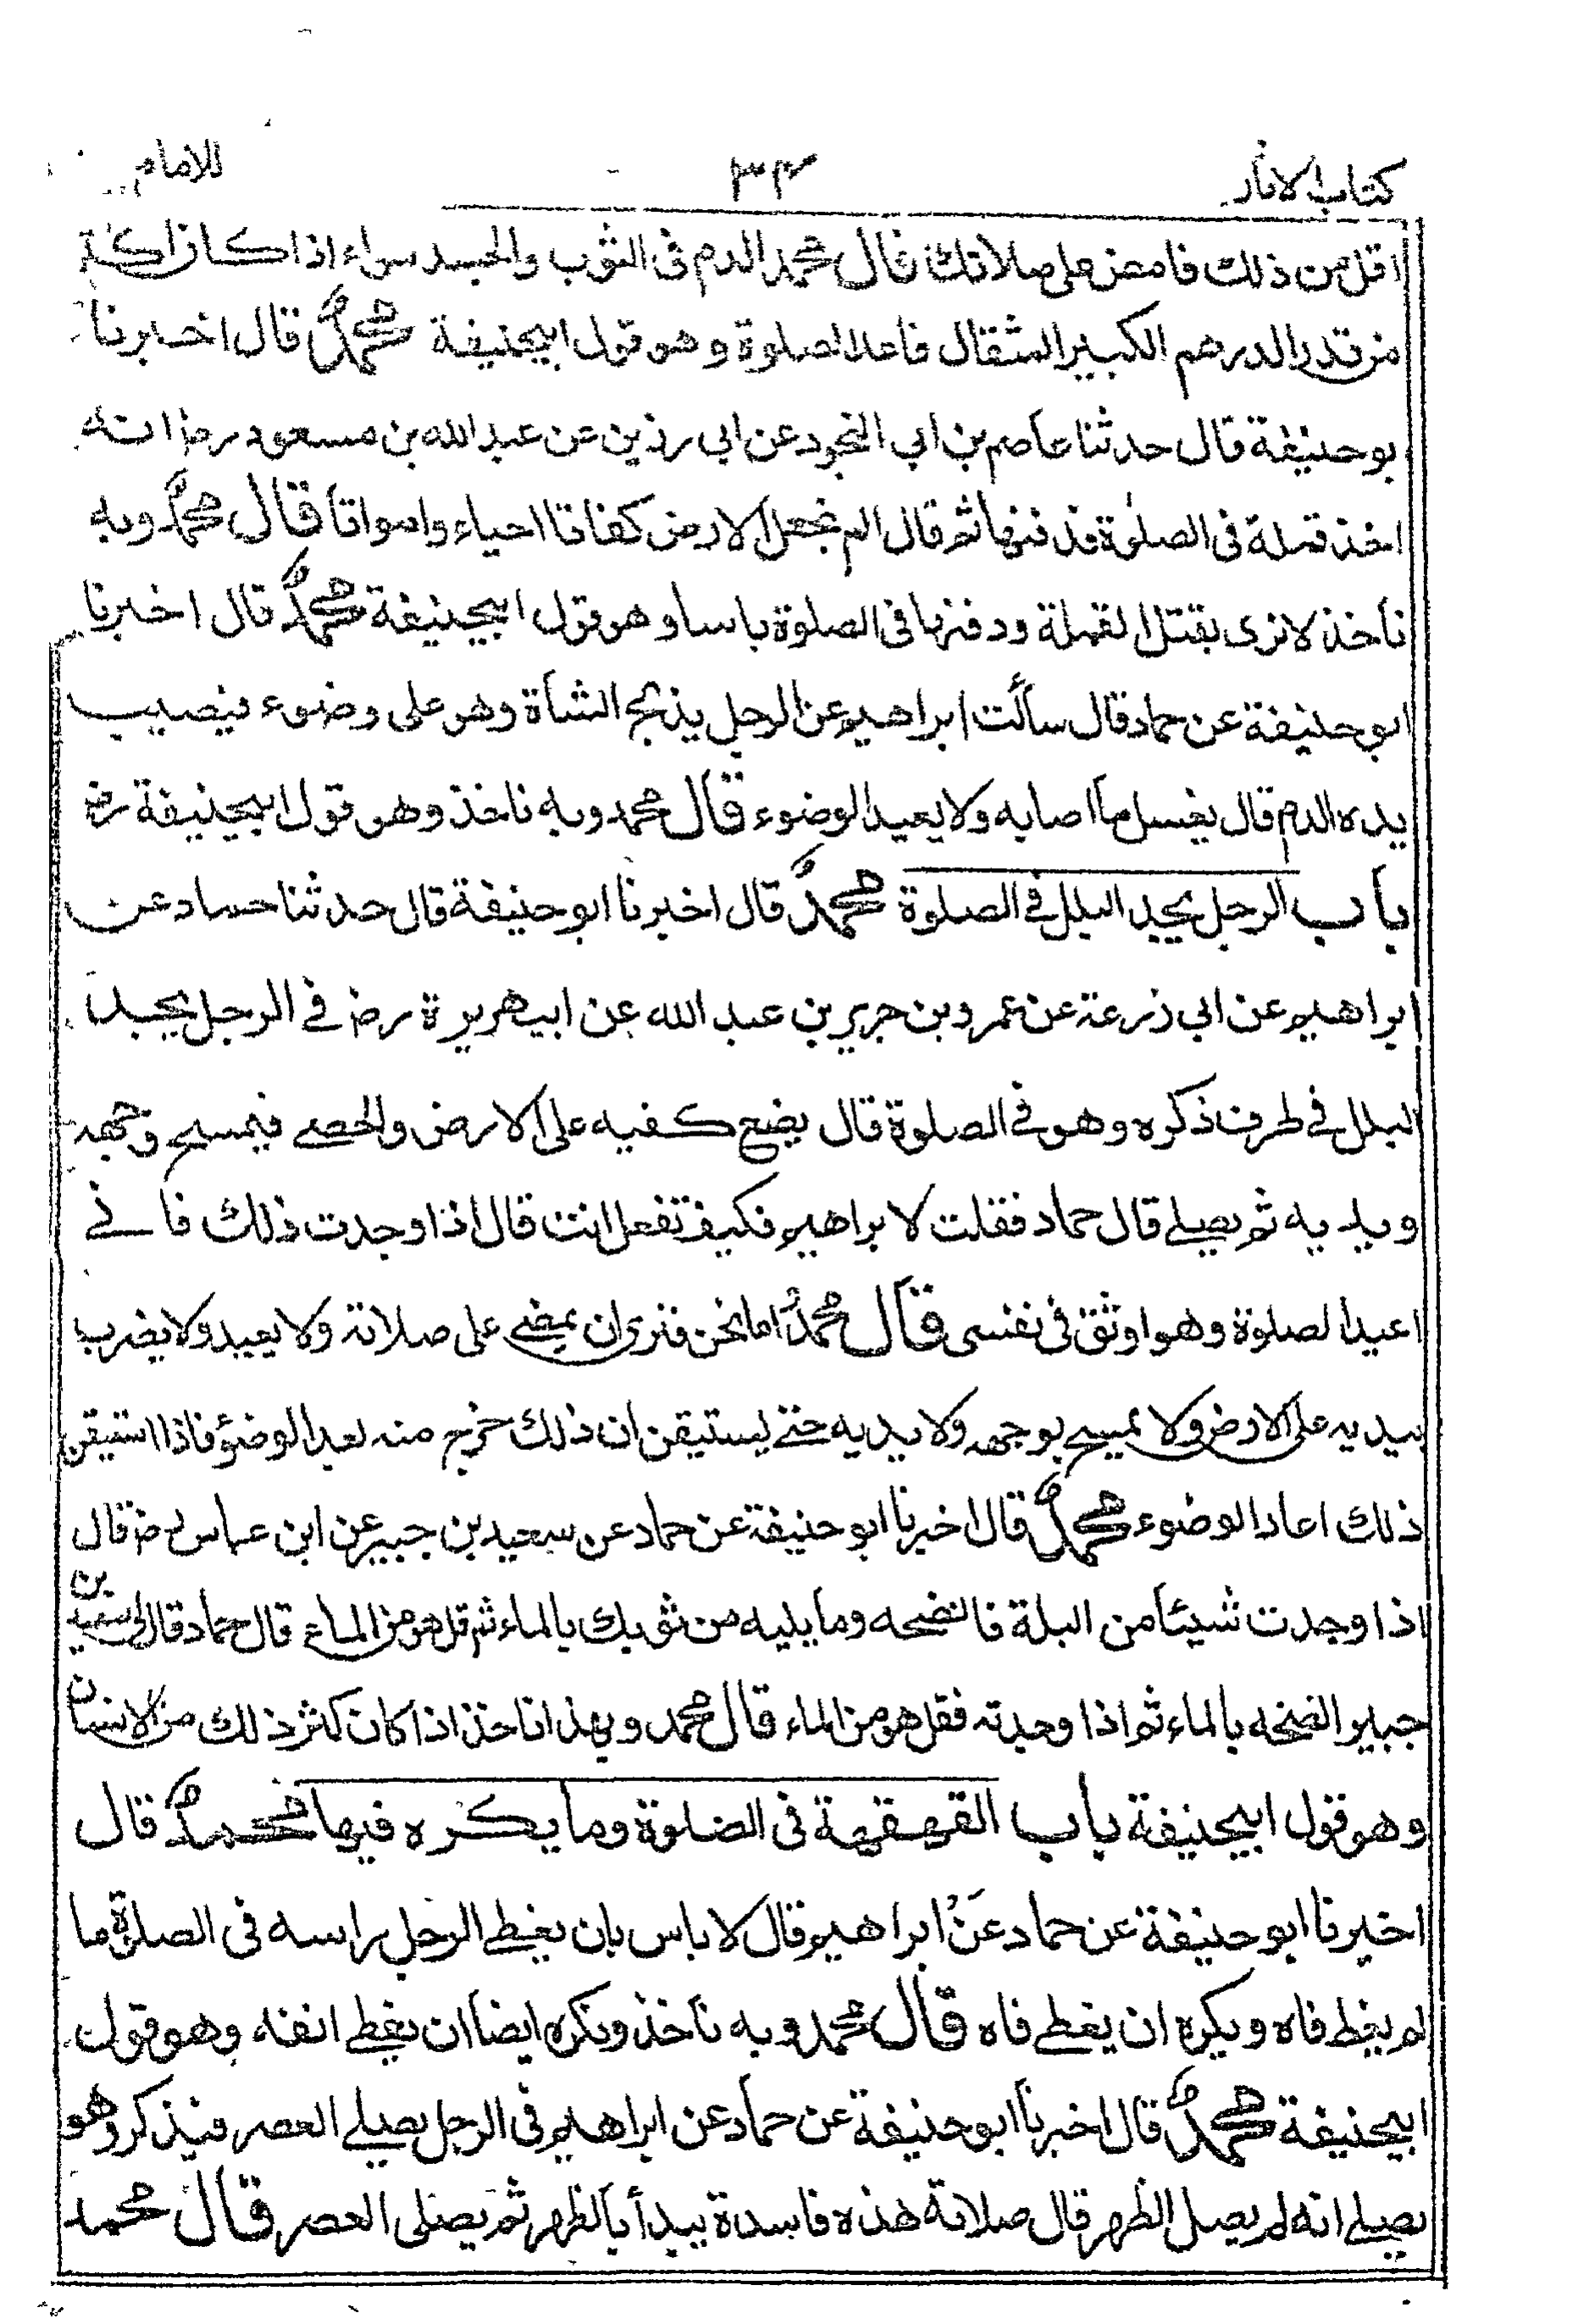 كتاب الاثار ٣٤ للامام
اقل من ذلك فامض على صلاتك قال محمد الدم فى الثوب والجسد سواء اذا كان اكثر
من قدر الدرهم الكبير المثقال فاعد الصلوة وهو قول ابيحنيفة محمد قال اخبرنا
بوحنيفة قال حدثنا عاصم بن ابي النجود عن ابي رزين عن عبد الله بن مسعود رض انه
اخذ قملة فى الصلوة فدفنها ثم قال الم نجعل الارض كفاتا احياء وامواتا قال محمد وبه
ناخذ لا نرى بقتل القملة ودفنها فى الصلوة باسا وهو قول ابيحنيفة محمد قال اخبرنا
ابو حنيفة عن حماد قال سألت ابراهيم عن الرجل يذبح الشاة وهو على وضوء فيصيب
يده الدم قال يغسل ما اصابه ولا يعيد الوضوء قال محمد وبه ناخذ وهو قول ابيحنيفة رض
باب الرجل يجد البلل في الصلوة محمد قال اخبرنا ابو حنيفة قال حدثنا حماد عن
ابراهيم عن ابي زرعة عن عمرو بن جرير بن عبد الله عن ابيهريرة رض في الرجل يجد
البلل في طرف ذكره وهو في الصلوة قال يضع كفيه على الارض والحصى فيمسح وجهه
ويديه ثم يصلى قال حماد فقلت لابراهيم فكيف تفعل انت قال اذا وجدت ذلك فاني
اعيد الصلوة وهو اوثق فى نفسى قال محمد اما نحن فنرى ان يمضى على صلاته ولا يعيد ولا يضرب
بيديه على الارض ولا يمسح بوجهه ولا يديه حتى يستيقن ان ذلك خرج منه بعد الوضوء فاذا استيقن
ذلك اعاد الوضوء محمد قال اخبرنا ابو حنيفة عن حماد عن سعيد بن جبير عن ابن عباس رض قال
اذا وجدت شيئا من البلة فانضحه وما يليه من ثوبك بالماء ثم قل هو من الماء قال حماد قال لى سعيد بن
جبير انضحه بالماء ثم اذا وجدته فقل هو من الماء قال محمد وبهذا ناخذ اذا كان كثر ذلك من الانسان
وهو قول ابيحنيفة باب القهقهة فى الصلوة وما يكره فيها محمد قال
اخبرنا ابو حنيفة عن حماد عن ابراهيم قال لا باس بان يغطى الرجل راسه فى الصلوة ما
لم يغط فاه ويكره ان يغطى فاه قال محمد وبه ناخذ ونكره ايضا ان يغطى انفه وهو قول
ابيحنيفة محمد قال اخبرنا ابو حنيفة عن حماد عن ابراهيم فى الرجل يصلى العصر فيذكر وهو
يصلى انه لم يصل الظهر قال صلاته هذه فاسدة يبدأ بالظهر ثم يصلى العصر قال محمد